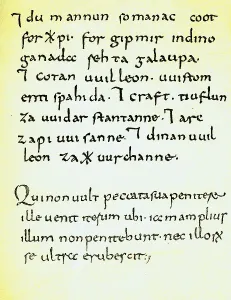 ⁊ du mannun somanac coot
for⁊pi. for gipmir indino
ganadæ rehta galaupa.
⁊ cotan uuilleon. uuistom
enti spahida. ⁊ craft. tiuflun
za uuidarstantanne. ⁊ arc
zapiuuisanne. ⁊ dinan uuil
leon za⁊uurchanne.
Qui non uult peccata sua penitere
ille uenit iterum ubi iam amplius
illum non penitebunt. nec illorum
se ultra erubescit;